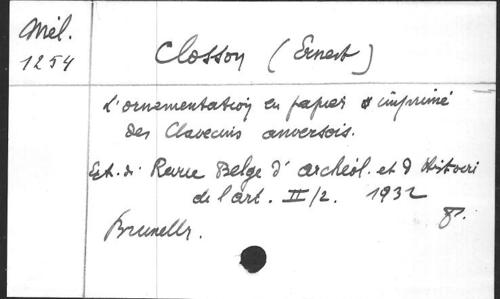 Mél.
1254
Closson (Ernest)
L'ornementation en papier imprimé
des Clavecins anversois.
Ext. d. Revue Belge d'archéol. et d'Histoire
de l'art. II/2. 1932
8°.
Bruxelles.